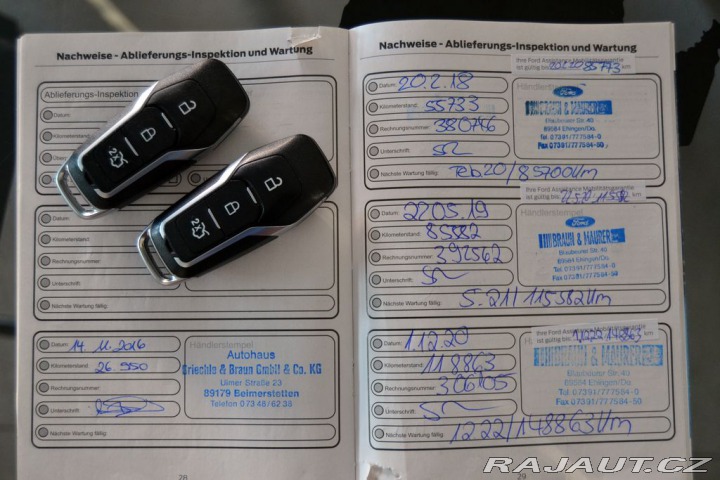 Nachweise - Ablieferungs-Inspektion und Wartung
Ablieferungs-Inspektion
Datum:
Kilometerstand:
Datum:
Kilometerstand:
Rechnungsnummer:
Unterschrift:
Nächste Wartung fällig:
Datum: 14.11.2016
Kilometerstand: 26.950
Rechnungsnummer:
Unterschrift:
Nächste Wartung fällig:
Händlerstempel:
Autohaus
Griechle & Braun GmbH & Co. KG
Ulmer Straße 23
89179 Beimerstetten
Telefon 0 73 48/62 38
28
Nachweise - Ablieferungs-Inspektion und Wartung
Ihre Ford Assistance Mobilitätsgarantie
ist gültig bis: km
Datum: 20.2.18
Kilometerstand: 55733
Rechnungsnummer: 380746
Unterschrift:
Nächste Wartung fällig: Feb 20/85700km
Händlerstempel:
Ford
BRAUN & MAURER
Blaubeurer Str. 40
89584 Ehingen/Do.
Tel. 07391/777584-0
Fax 07391/777584-50
Ihre Ford Assistance Mobilitätsgarantie
ist gültig bis: km
Datum: 27.05.19
Kilometerstand: 85582
Rechnungsnummer: 392562
Unterschrift:
Nächste Wartung fällig: 5.21/115582km
Händlerstempel:
Ford
BRAUN & MAURER
Blaubeurer Str. 40
89584 Ehingen/Do.
Tel. 07391/777584-0
Fax 07391/777584-50
Ihre Ford Assistance Mobilitätsgarantie
ist gültig bis: 12.22 148863 km
Datum: 1.12.20
Kilometerstand: 118863
Rechnungsnummer: 306105
Unterschrift:
Nächste Wartung fällig: 12.22/148863km
BRAUN & MAURER
Blaubeurer Str. 40
89584 Ehingen/Do.
Tel. 07391/777584-0
Fax 07391/777584-50
29
RAJAUT.CZ